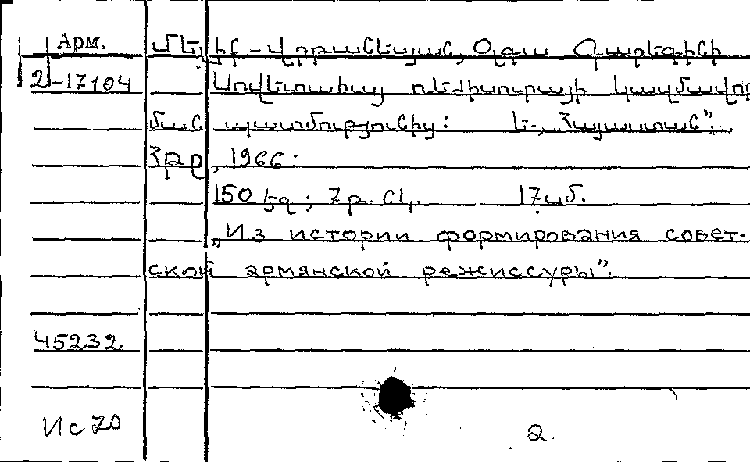 Арм. Մելիք-Վրթանեսյան, Օլգա Գարեգինի
2-17104 Սովետահայ ռեժիսուրայի կազմավոր
ման պատմությունից: Ե., „Հայաստան”.
Հրր, 1966:
150 էջ; 7 թ. նկ. 17սմ.
„Из истории формирования совет-
ской армянской режиссуры”.
45232.
Ис 70
2.